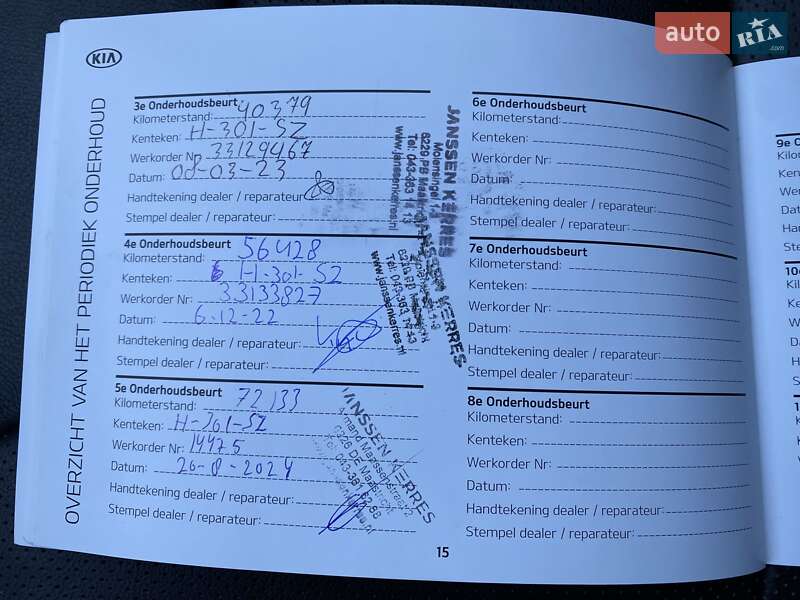 auto RIA .com
KIA
OVERZICHT VAN HET PERIODIEK ONDERHOUD
3e Onderhoudsbeurt
Kilometerstand: 40379
Kenteken: H-301-SZ
Werkorder Nr: 33129467
Datum: 00-03-23
Handtekening dealer / reparateur:
Stempel dealer / reparateur:
JANSSEN KERRES
Molensingel
6229 PB Maas
Tel: 043-363 14 13
www.janssenkerres.nl
4e Onderhoudsbeurt
Kilometerstand: 56428
Kenteken: H-301-SZ
Werkorder Nr: 33133827
Datum: 6-12-22
Handtekening dealer / reparateur:
Stempel dealer / reparateur:
JANSSEN KERRES
www.janssenkerres.nl
5e Onderhoudsbeurt
Kilometerstand: 72133
Kenteken: H-301-SZ
Werkorder Nr: 14475
Datum: 20-8-2024
Handtekening dealer / reparateur:
Stempel dealer / reparateur:
JANSSEN KERRES
6e Onderhoudsbeurt
Kilometerstand:
Kenteken:
Werkorder Nr:
Datum:
Handtekening dealer / reparateur:
Stempel dealer / reparateur:
7e Onderhoudsbeurt
Kilometerstand:
Kenteken:
Werkorder Nr:
Datum:
Handtekening dealer / reparateur:
Stempel dealer / reparateur:
8e Onderhoudsbeurt
Kilometerstand:
Kenteken:
Werkorder Nr:
Datum:
Handtekening dealer / reparateur:
Stempel dealer / reparateur:
15